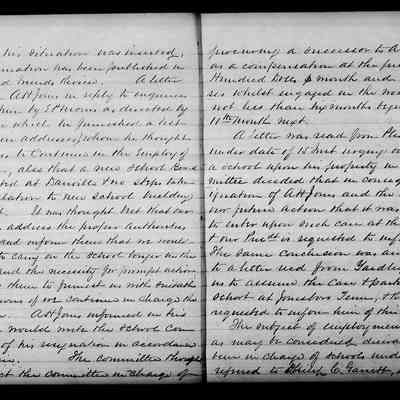 his situation was inserted,
mation had been published in
Friends Review. A letter
A H Jones in reply to enquiries
him by Ed Morris as directed by
in which he furnished a list
addresses whom he thought
to Continue in the Employ of
, also that a new School
at Danville & no steps take
relation to new school building
It was thought best that our
address the proper authorities
and inform them that we were
to carry on the school longer on the
and the necessity for prompt action
them to furnish us with suitable
or continue in charge this
A H Jones informed in his
would unite the School Com
of his resignation in accordance
The committee thought
the committee in charge of
procuring a successor to A
as a compensation at the
Hundred Dolls p month and
ses whilst engaged in the wo
not less than six months begin
11th month next.
A letter was read from
under date of 15 inst urging us
a school upon his property in
mittee decided that in conseq
ignation of A H Jones and the
our future action that it was
to enter upon such care at the
& our is requested to inf
The same conclusion was arr
to a letter read from Yardley
us to assume the Care & part
School at Jonesboro Tenn, & the
requested to inform him of this
The subject of employment
as may be considered
been in charge of schools under
referred to Philip C. Garrett,